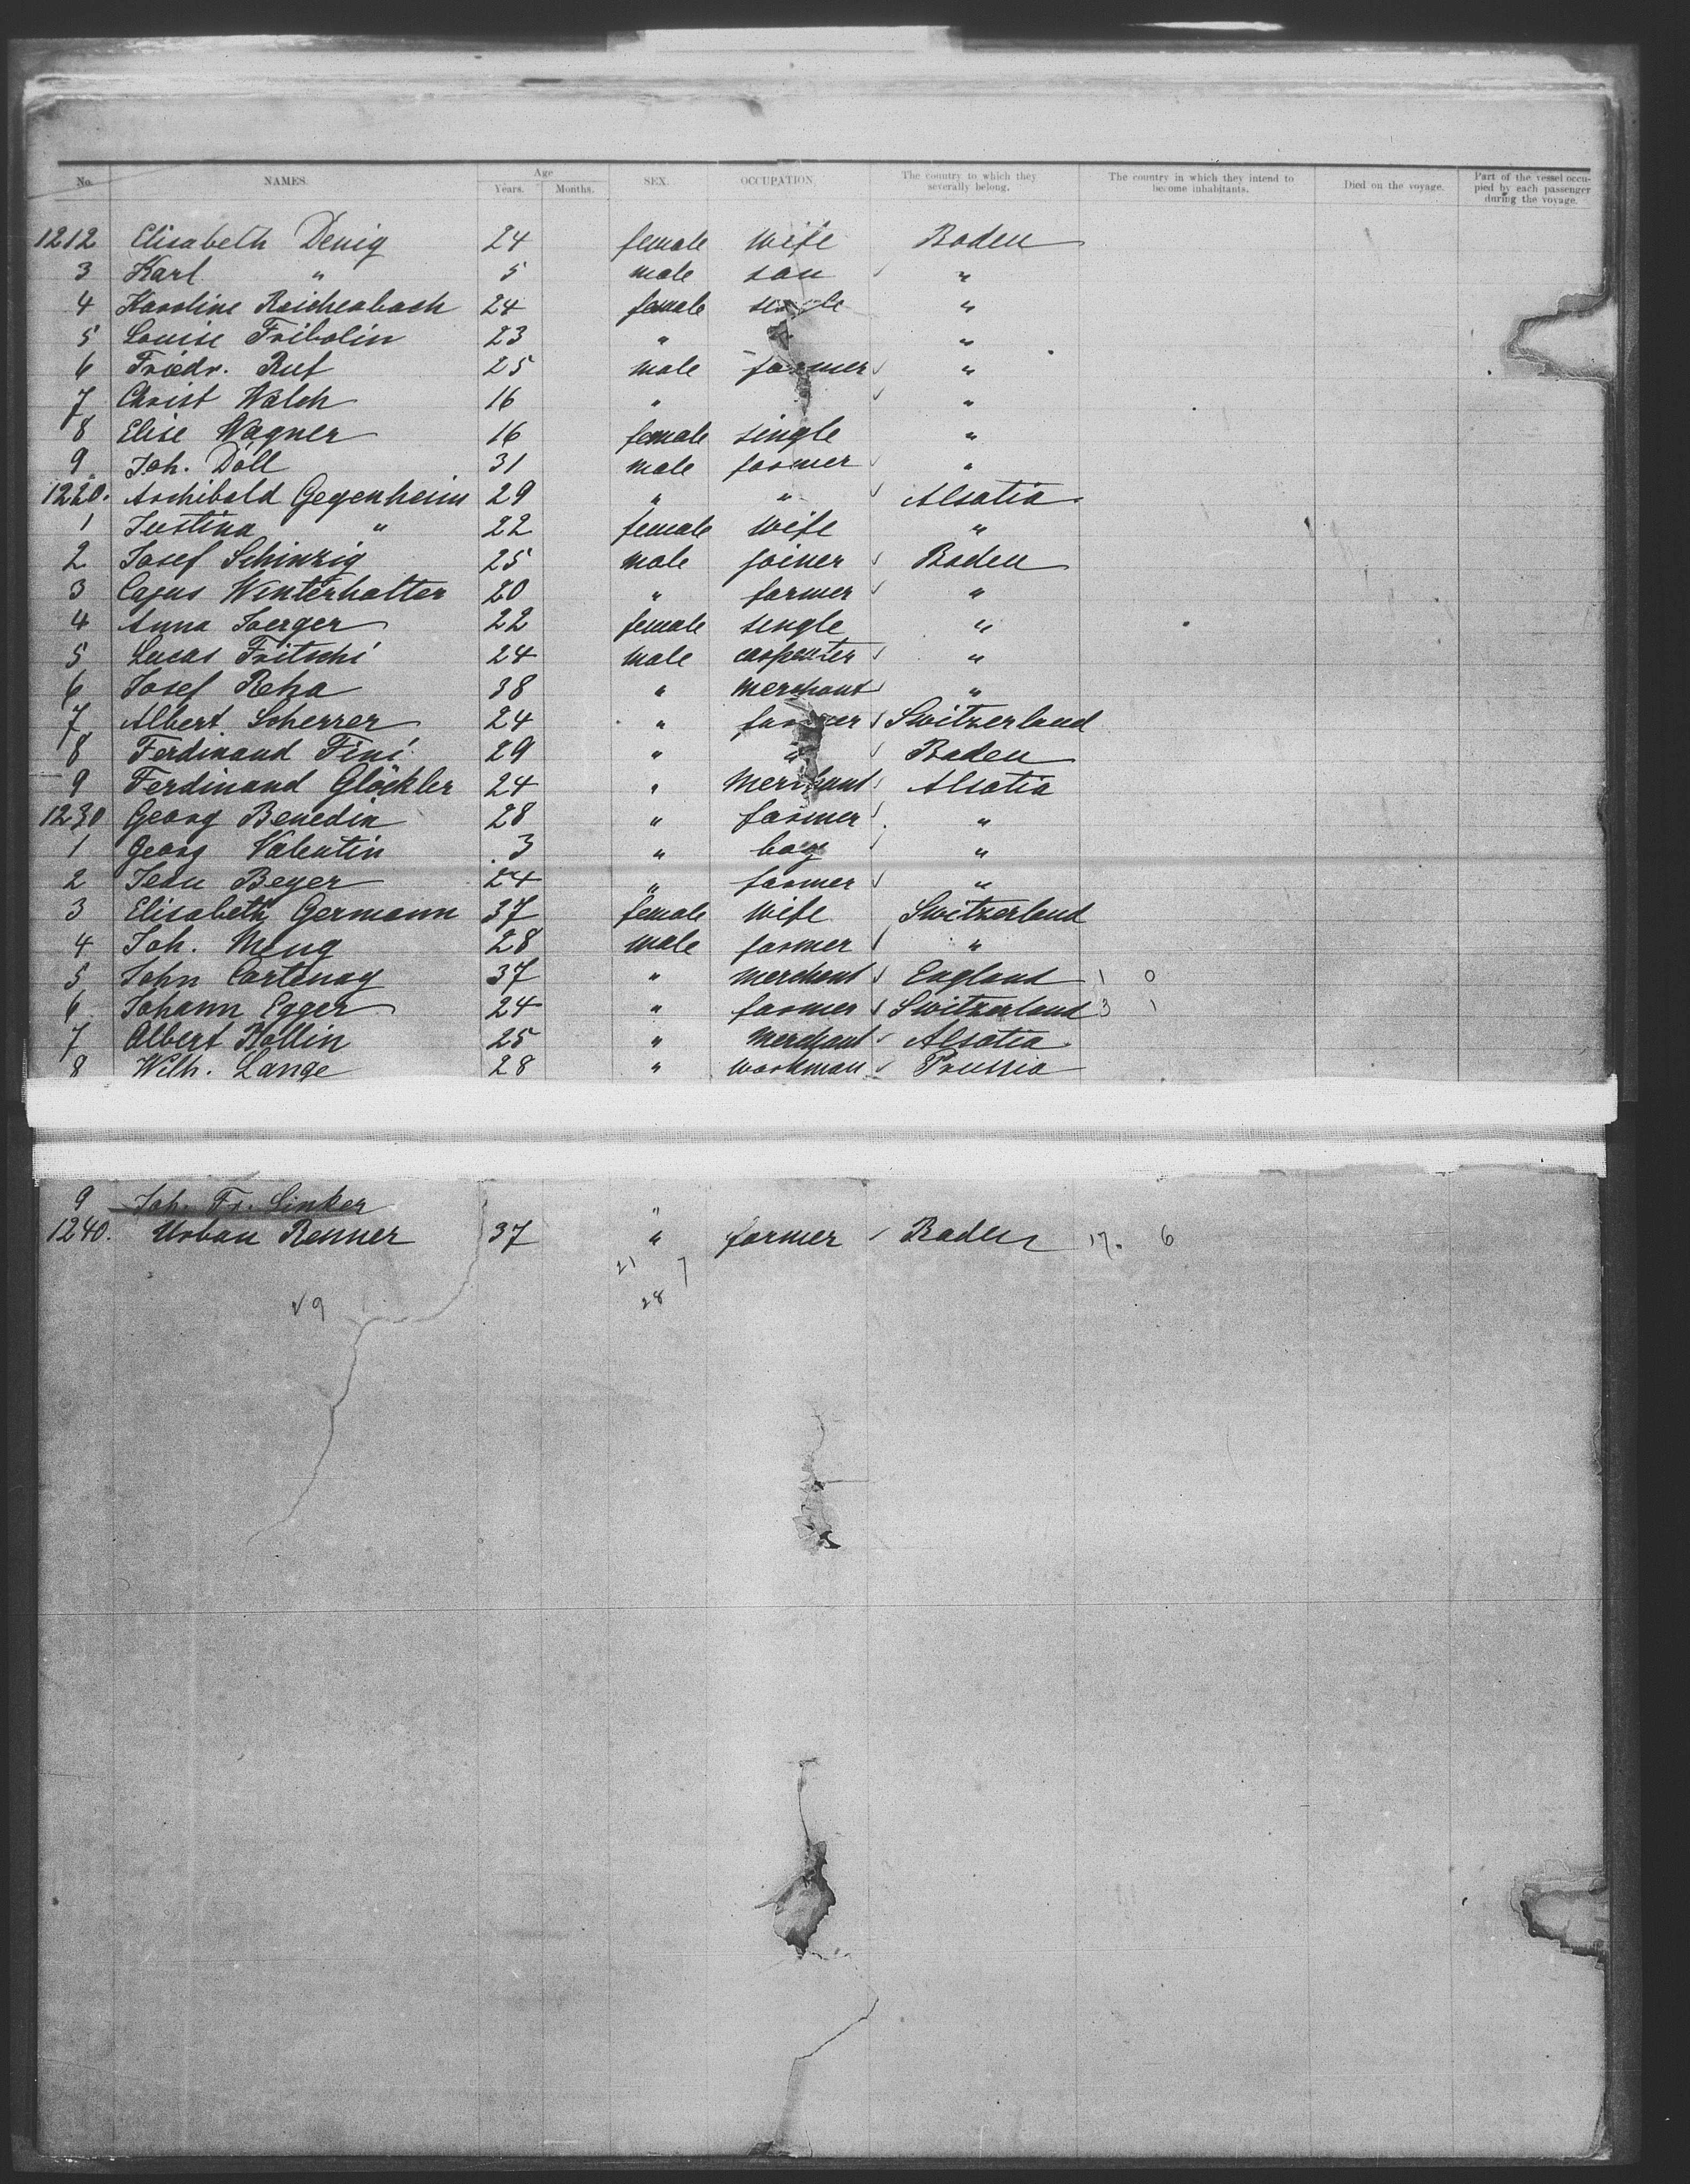 No. NAMES. Age Years. Months. SEX. OCCUPATION The country to which they severally belong. The country in which they intend to become inhabitants. Died on the voyage. Part of the vessel occupied by each passenger during the voyage.
1212 Elisabeth Denig 24 female wife Baden
3 Karl " 5 male son "
4 Karoline Reichenbach 24 female single "
5 Louise Fribolin 23 " "
6 Friedr. Ruf 25 male farmer "
7 Christ Walch 16 " "
8 Elise Wagner 16 female single "
9 Joh. Döll 31 male farmer "
1220. Archibald Gegenheim 29 " " Alsatia
1 Justina " 22 female wife "
2 Josef Schinzig 25 male joiner Baden
3 Cajus Winterhalter 20 " farmer "
4 Anna Joerger 22 female single "
5 Lucas Fritschi 24 male carpenter "
6 Josef Reha 38 " merchant "
7 Albert Scherrer 24 " farmer Switzerland
8 Ferdinand Fini 29 " " Baden
9 Ferdinand Glöckler 24 " Merchant Alsatia
1230 Georg Benedin 28 " farmer "
1 Georg Valentin 3 " boy "
2 Jean Beyer 24 " farmer "
3 Elisabeth Germann 37 female wife Switzerland
4 Joh. Meng 28 male farmer "
5 John Cortenay 37 " merchant England 1 0
6 Johann Egger 24 " farmer Switzerland 3 1
7 Albert Hollin 25 " merchant Alsatia
8 Wilh. Lange 28 " workman Prussia
9 Joh. Fr. Linker "
1240. Urban Renner 37 " farmer Baden 17. 6
21 7
√9 28